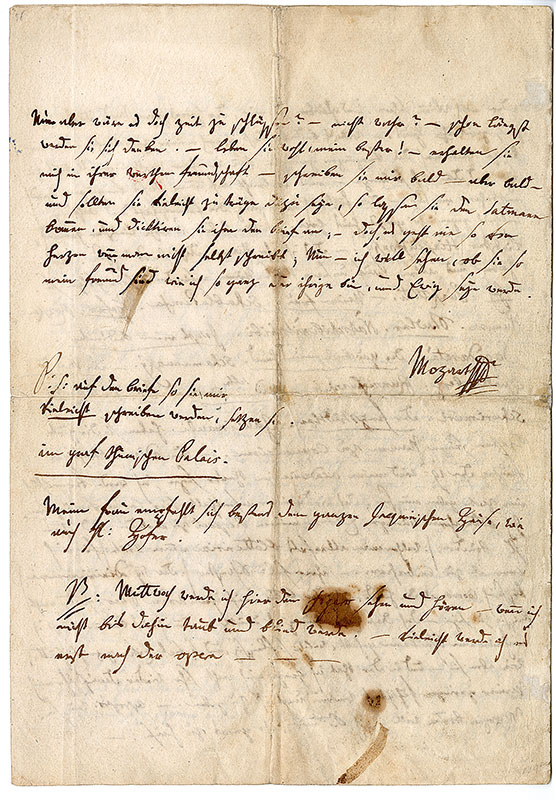 Nun aber wäre es doch zeit zu schlüssen? – nicht wahr? – schon längst
werden sie sich denken. – leben sie wohl, mein bester! – erhalten sie
mich in ihrer werthen freundschaft – schreiben sie mir bald – aber bald –
und sollten sie vieleicht zu träge dazu seyn, so lassen sie den Satmann
kommen, und dicktiren sie ihm den brief an; – doch es geht nie so von
herzen wenn man nicht selbst schreibt; Nun – ich will sehen, ob sie so
mein freund sind wie ich so ganz der ihrige bin, und Ewig seyn werde.
Mozart
P:S: auf den briefe so sie mir
vieleicht schreiben werden, setzen sie.
im graf thunischen Palais.
Meine frau empfehlt sich bestens dem ganzen Jacquinischen Hause, wie
auch H: Hofer.
NB: Mittwoch werde ich hier den figaro sehen und hören – wenn ich
nicht bis dahin taub und blind werde. – vieleicht werde ich es
erst nach der opera – – –